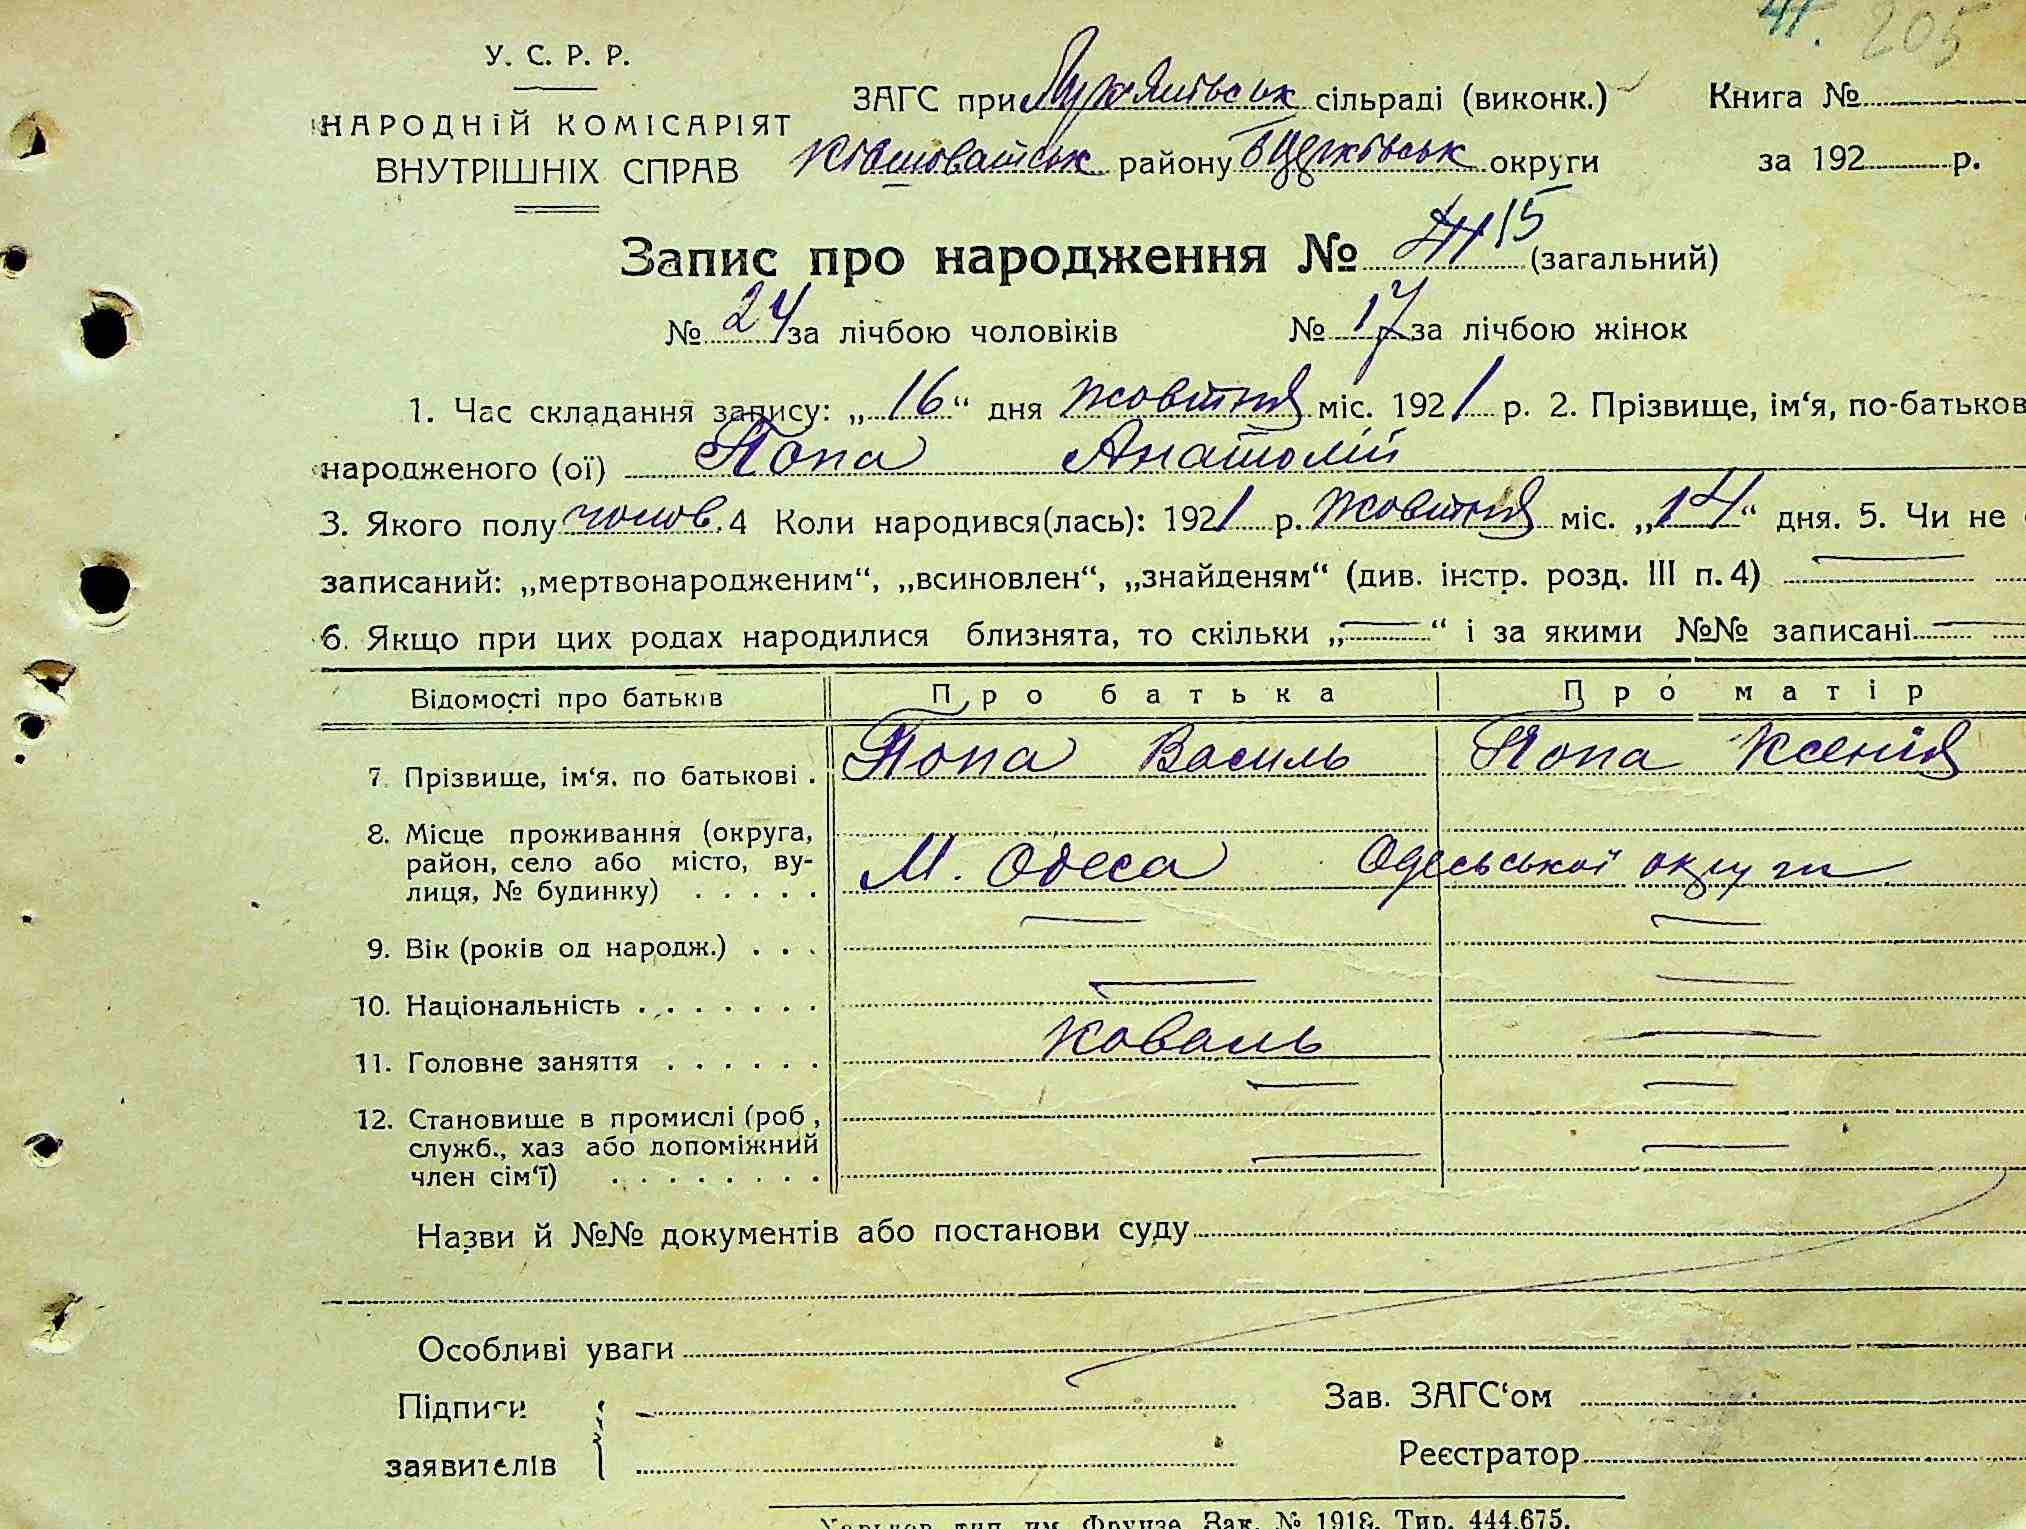 41. 205
У. С. Р. Р.
НАРОДНІЙ КОМІСАРІЯТ
ВНУТРІШНІХ СПРАВ
ЗАГС при Лукянівськ сільраді (виконк.) Книга №
Ківшоватськ району БЦерківськ округи за 192 р.
Запис про народження № 15 (загальний)
№ 24 за лічбою чоловіків № 17 за лічбою жінок
1. Час складання запису: „16“ дня жовтня міс. 1921 р. 2. Прізвище, ім‘я, по-батьков
народженого (ої) Попа Анатолій
3. Якого полу чолов. 4 Коли народився(лась): 1921 р. жовтня міс. „14“ дня. 5. Чи не
записаний: „мертвонародженим“, „всиновлен“, „знайденям“ (див. інстр. розд. III п. 4) —
6. Якщо при цих родах народилися близнята, то скільки „—“ і за якими №№ записані —
Відомості про батьків Про батька Про матір
7. Прізвище, ім‘я. по батькові . Попа Василь Попа Ксенія
8. Місце проживання (округа,
район, село або місто, ву-
лиця, № будинку) . . . . . М. Одеса Одеської округи
9. Вік (років од народж.) . . . — —
10. Національність . . . . . . . — —
11. Головне заняття . . . . . . Коваль —
12. Становище в промислі (роб ,
служб., хаз або допоміжний
член сім‘ї) . . . . . . . . — —
Назви й №№ документів або постанови суду
Особливі уваги
Підписи
заявителів
Зав. ЗАГС‘ом
Реєстратор
Харьков, тип. им. Фрунзе Зак. № 1918. Тир. 444.675.